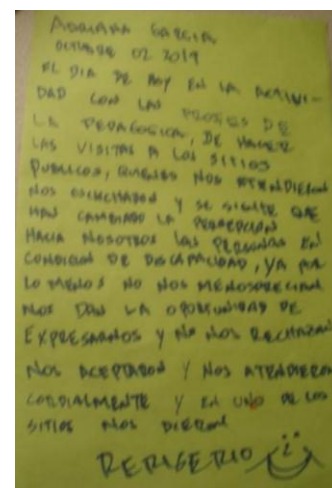 ADRIANA GARCIA
OCTUBRE 02 2019
EL DIA DE HOY EN LA ACTIVI-
DAD CON LAS PROFES DE
LA PEDAGOGICA, DE HACER
LAS VISITAS A LOS SITIOS
PUBLICOS, QUIENES NOS ATENDIERON
NOS ESCUCHARON Y SE SIENTE QUE
HAN CAMBIADO LA PERCEPCION
HACIA NOSOTROS LAS PERSONAS EN
CONDICION DE DISCAPACIDAD, YA POR
LO MENOS NO NOS MENOSPRECIAN
NOS DAN LA OPORTUNIDAD DE
EXPRESARNOS Y NO NOS RECHAZAN
NOS ACEPTARON Y NOS ATENDIERON
CORDIALMENTE Y EN UNO DE LOS
SITIOS NOS DIERON
REFRIGERIO